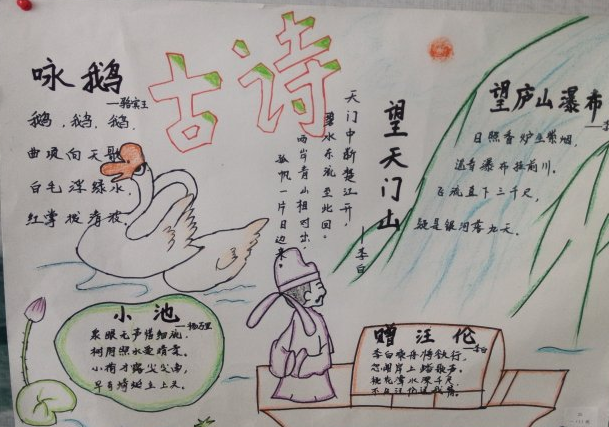 古诗
咏鹅
—骆宾王
鹅,鹅,鹅,
曲项向天歌
白毛浮绿水,
红掌拨清波。
望天门山
—李白
天门中断楚江开,
碧水东流至此回。
两岸青山相对出,
孤帆一片日边来。
望庐山瀑布
—李
日照香炉生紫烟,
遥看瀑布挂前川。
飞流直下三千尺,
疑是银河落九天。
小池
—杨万里
泉眼无声惜细流,
树阴照水爱晴柔。
小荷才露尖尖角,
早有蜻蜓立上头。
赠汪伦
—李白
李白乘舟将欲行,
忽闻岸上踏歌声。
桃花潭水深千尺,
不及汪伦送我情。